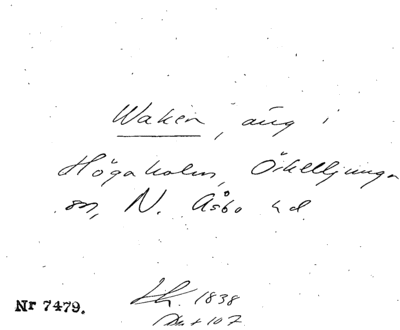 Waken, äng i
Högaholm, Örkelljunga
sn, N. Åsbo hd
Nr 7479.
1838
107